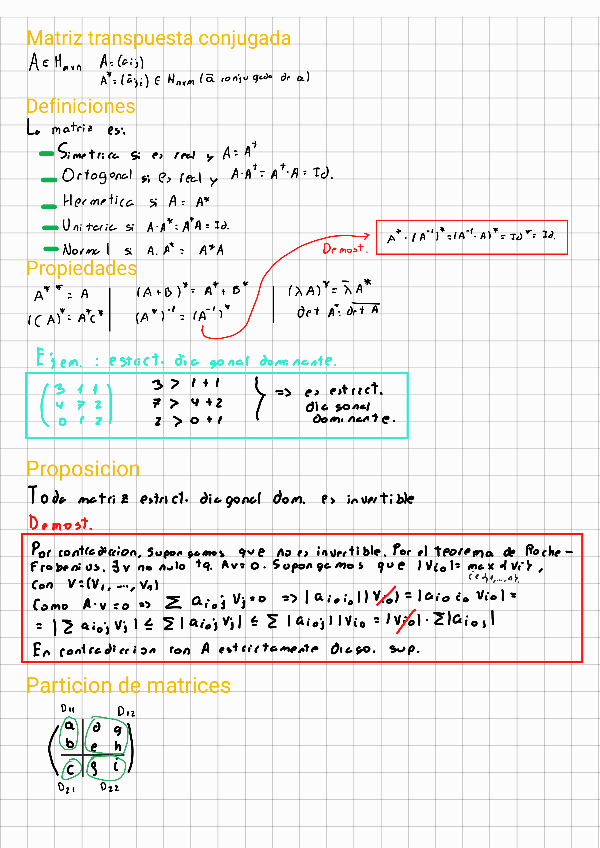 Matriz transpuesta conjugada
A ∈ Mnxn A = (aij)
A* = (āji) ∈ Mnxm (ā conjugado de a)
Definiciones
La matriz es:
Simetrica si es real y A = Aᵗ
Ortogonal si es real y A·Aᵗ = Aᵗ·A = Id.
Hermetica si A = A*
Unitaria si A·A* = A*A = Id.
Normal si A.A* = A*A
Demost.
A*·(A⁻¹)* = (A⁻¹·A)* = Id* = Id.
Propiedades
A** = A | (A+B)* = A* + B* | (λA)* = λ̄A*
(CA)* = A*C* | (A*)⁻¹ = (A⁻¹)* | det A* = det A̅
Ejem. : estrict. diagonal dominante.
3 1 1 3 > 1+1
4 7 2 7 > 4+2 => es estrict. diagonal dominante.
0 1 2 2 > 0+1
Proposicion
Toda matriz estrict. diagonal dom. es invertible
Demost.
Por contradiccion. Supongamos que no es invertible. Por el teorema de Roche-
Frobenius. ∃v no nulo tq. Av=0. Supongamos que |Vio| = max{|Vi|},
con V=(V1, ..., Vn)
Como A·v=0 => ∑ aioj Vj=0 => |aioio||Vio| = |aioio Vio| =
= |∑ aioj Vj| ≤ ∑|aioj Vj| ≤ ∑ |aioj||Vio = |Vio|·∑|aioj|
En contradiccion con A estrictamente diago. sup.
Particion de matrices
D11 D12
a d g
b e h
c f i
D21 D22